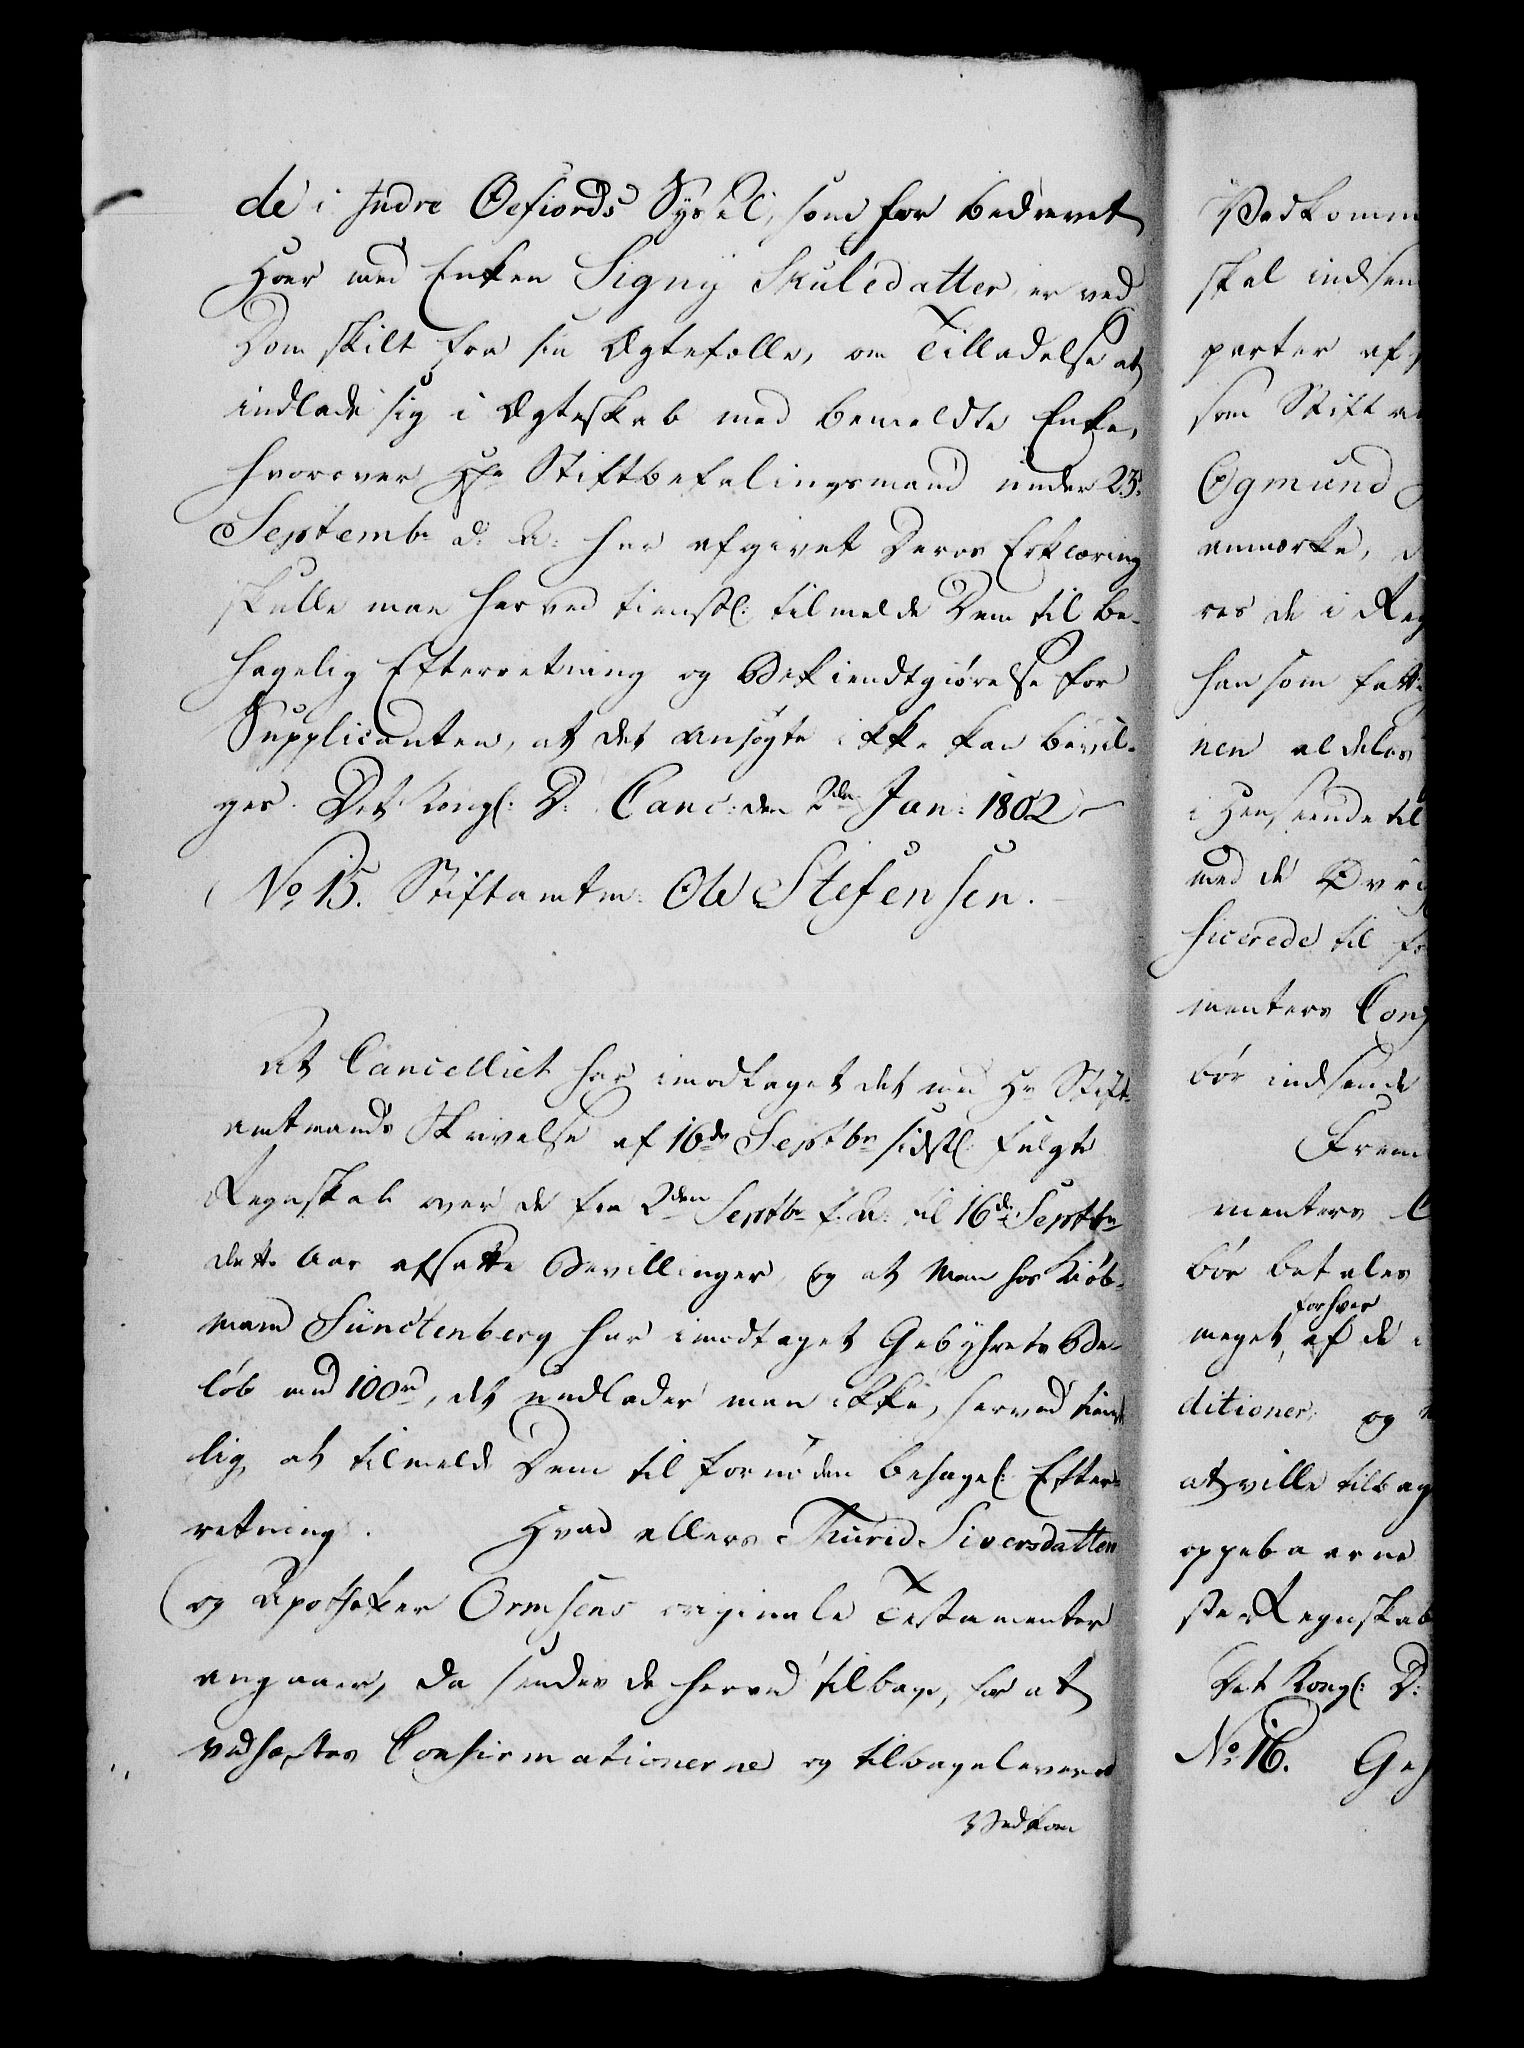 de i Indre Oefiords Syssel, som for bedrevet
Hoer med Enken Signÿ Skuledatter, er ved
Dom skilt fra sin Ægtefælle, om Tilladelse at
indlade sig i Ægteskab med bemeldte Enke,
hvorover Hr Stiftbefalingsmand under 23.
Septembr d. A. har afgivet Deres Erklæring
skulle man herved tienstl: tilmelde Dem til be-
hagelig Efterretning og Bekiendtgiørelse for
Supplicanten, at det ansøgte ikke kan bevil-
ges. Det Kongl: D: Canc: den 2den Jan: 1802
No 15. Stiftamtm: Ole Stefensen.
At Cancelliet har imodtaget det med Hr Stift-
amtmands Skrivelse af 16de Septbr sidstl: fulgte
Regnskab over de fra 2den Septbr f: A: til 16de Septbr
dette Aar afsatte Bevillinger, og at man hos Kiøb-
mand Sünctenberg har imodtaget Gebyhrets Be-
løb med 100rd, det undlader man ikke, herved tienst-
lig, at tilmelde Dem til fornøden behagel: Efter-
retning. Hvad ellers Thurid Siversdatters
og Apotheker Ormsens originale Testamenter
angaaer, da sendes de herved tilbage, for at
vedhæftes Confirmationerne og tilbageleveres
Vedkom
Vedkomm
skal indsen
parter af
som Stift a
Ogmund
anmærke, d
res de i Reg
han som fatt
nen aldeles
i Henseende til
med de Øvri
ficerede til f
menters Con
bør indsende
Frem
menters C
bør betales
for hver
meget, af de i
ditioner, og
at ville tilbag
oppebaarne
ste Regnskab
Det Kongl: D:
No 16. Geh